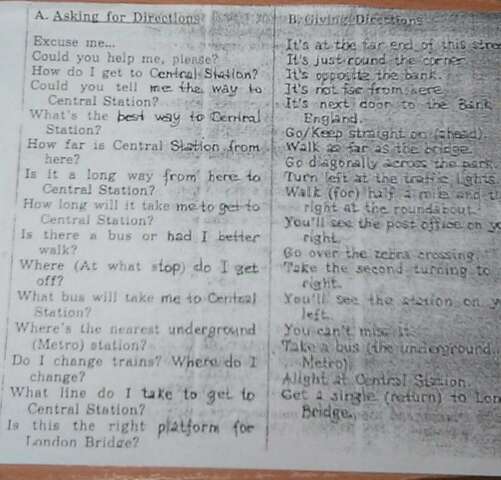 A. Asking for Directions
Excuse me...
Could you help me, please?
How do I get to Central Station?
Could you tell me the way to
Central Station?
What's the best way to Central
Station?
How far is Central Station from
here?
Is it a long way from here to
Central Station?
How long will it take me to get to
Central Station?
Is there a bus or had I better
walk?
Where (At what stop) do I get
off?
What bus will take me to Central
Station?
Where's the nearest underground
(Metro) station?
Do I change trains? Where do I
change?
What line do I take to get to
Central Station?
Is this the right platform for
London Bridge?
B. Giving Directions
It's at the far end of this
It's just round the corner
It's opposite the bank.
It's not far from here.
It's next door to the Bank
England.
Go/Keep straight on (ahead).
Walk as far as the bridge.
Go diagonally across the park.
Turn left at the traffic lights.
Walk (for) half a mile and
right at the roundabout.
You'll see the post office on
right.
Go over the zebra crossing.
Take the second turning to
right.
You'll see the station on
left.
You can't miss it.
Take a bus (the underground.
Metro).
Alight at Central Station.
Get a single (return) to
Bridge.